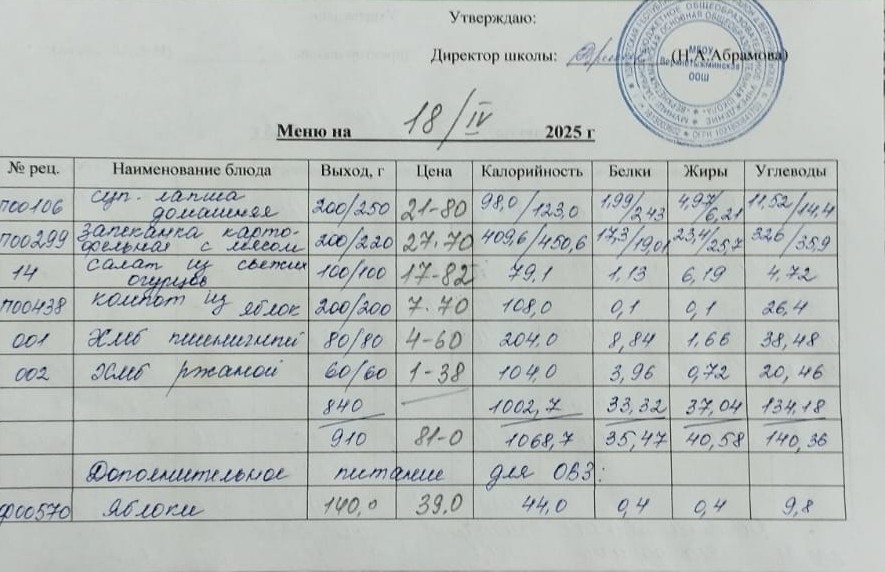 Утверждаю:
Директор школы: (Н.А.Абрамова)
МБОУ
ООШ
Меню на 18/IV 2025 г
№ рец. Наименование блюда Выход, г Цена Калорийность Белки Жиры Углеводы
П00106 суп. лапша домашняя 200/250 21-80 98,0/123,0 1,99/2,43 4,97/6,21 11,52/14,4
П00299 запеканка карто-
фельная с мясом 200/220 27.70 409,6/450,6 17,3/19,01 23,4/25,7 32,6/35,9
14 салат из свежих огурцов 100/100 17-82 79,1 1,13 6,19 4,72
П00438 компот из яблок 200/200 7.70 108,0 0,1 0,1 26,4
001 Хлеб пшеничный 80/80 4-60 204,0 8,84 1,66 38,48
002 Хлеб ржаной 60/60 1-38 104,0 3,96 0,72 20,46
840 — 1002,7 33,32 37,04 134,18
910 81-0 1068,7 35,47 40,58 140,36
Дополнительное питание для ОВЗ:
Ф00570 Яблоки 140,0 39,0 44,0 0,4 0,4 9,8